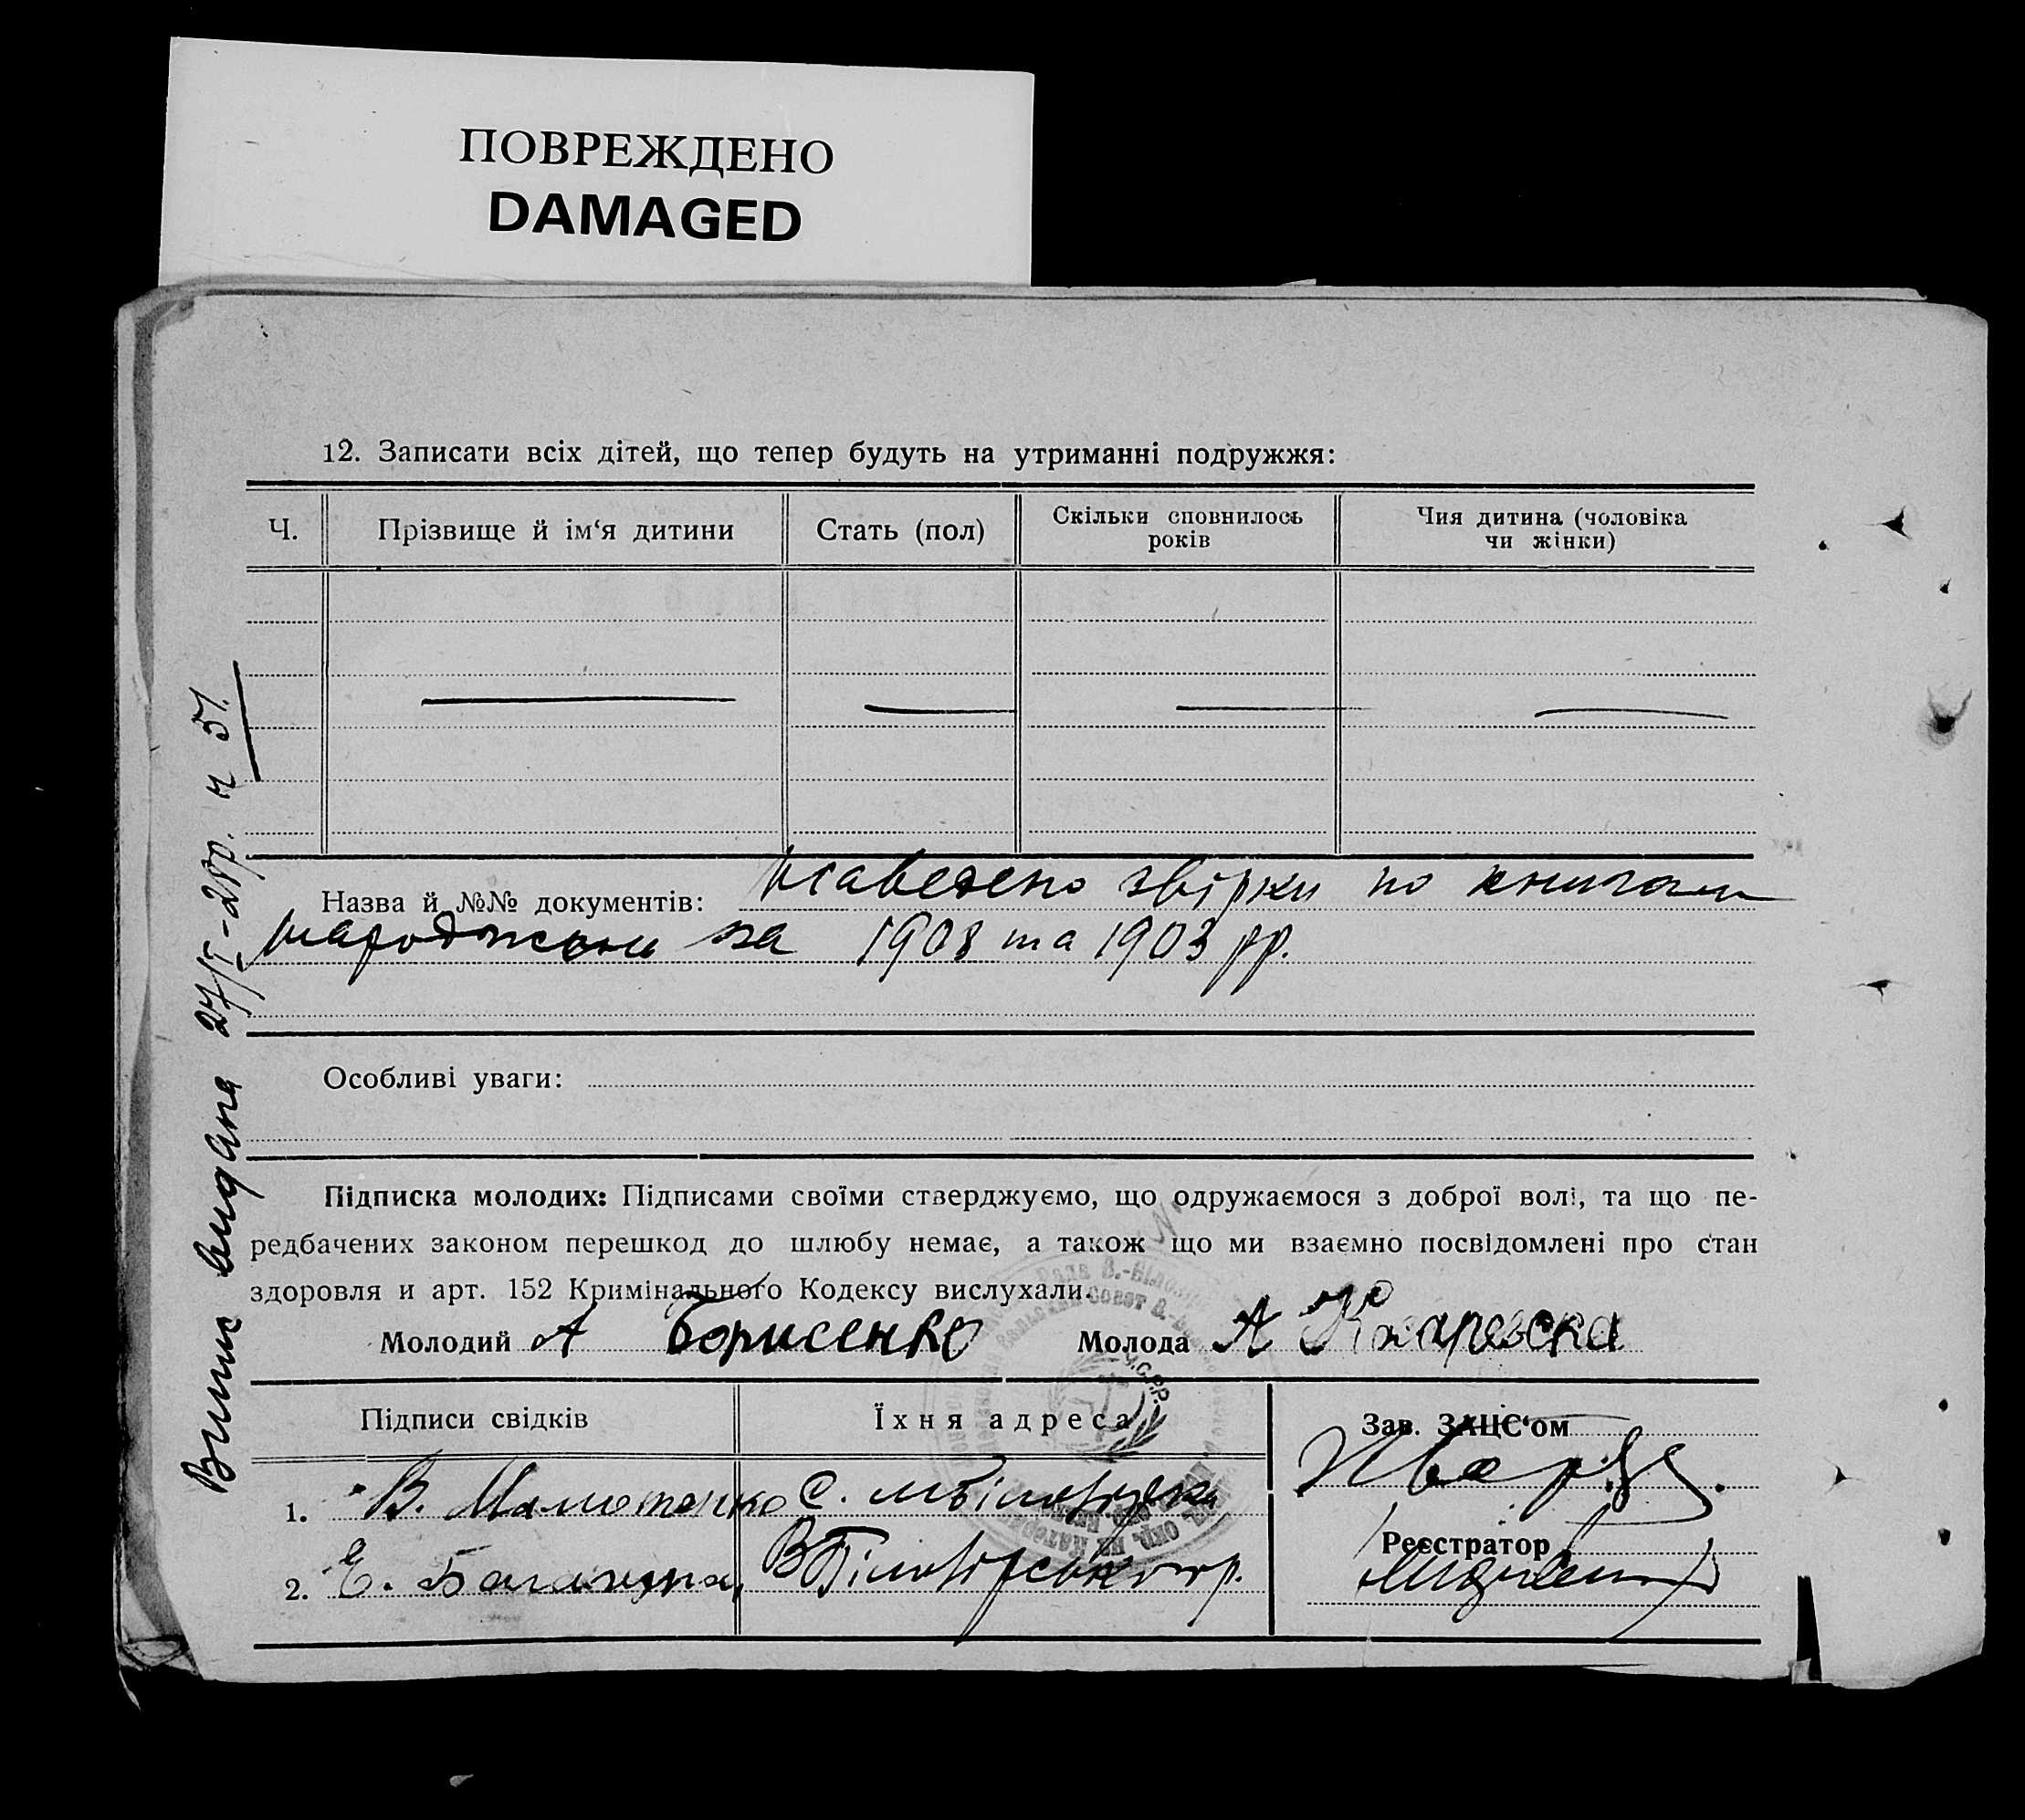 ПОВРЕЖДЕНО
DAMAGED
12. Записати всіх дітей, що тепер будуть на утриманні подружжя:
Ч. Прізвище й ім‘я дитини Стать (пол) Скільки сповнилось років Чия дитина (чоловіка чи жінки)
Назва й №№ документів: звірки по книгам
народжень за 1908 та 1903 рр.
Особливі уваги:
Підписка молодих: Підписами своїми стверджуємо, що одружаємося з доброї волі, та що пе-
редбачених законом перешкод до шлюбу немає, а також що ми взаємно посвідомлені про стан
здоровля и арт. 152 Кримінального Кодексу вислухали.
Молодий А Борисенко Молода А
Підписи свідків Їхня адреса Зав. ЗАЦС‘ом
1. В. С.
Реєстратор
2. Е.
У.С.Р.Р.
Випис видана 27/I-28р. ч 51.